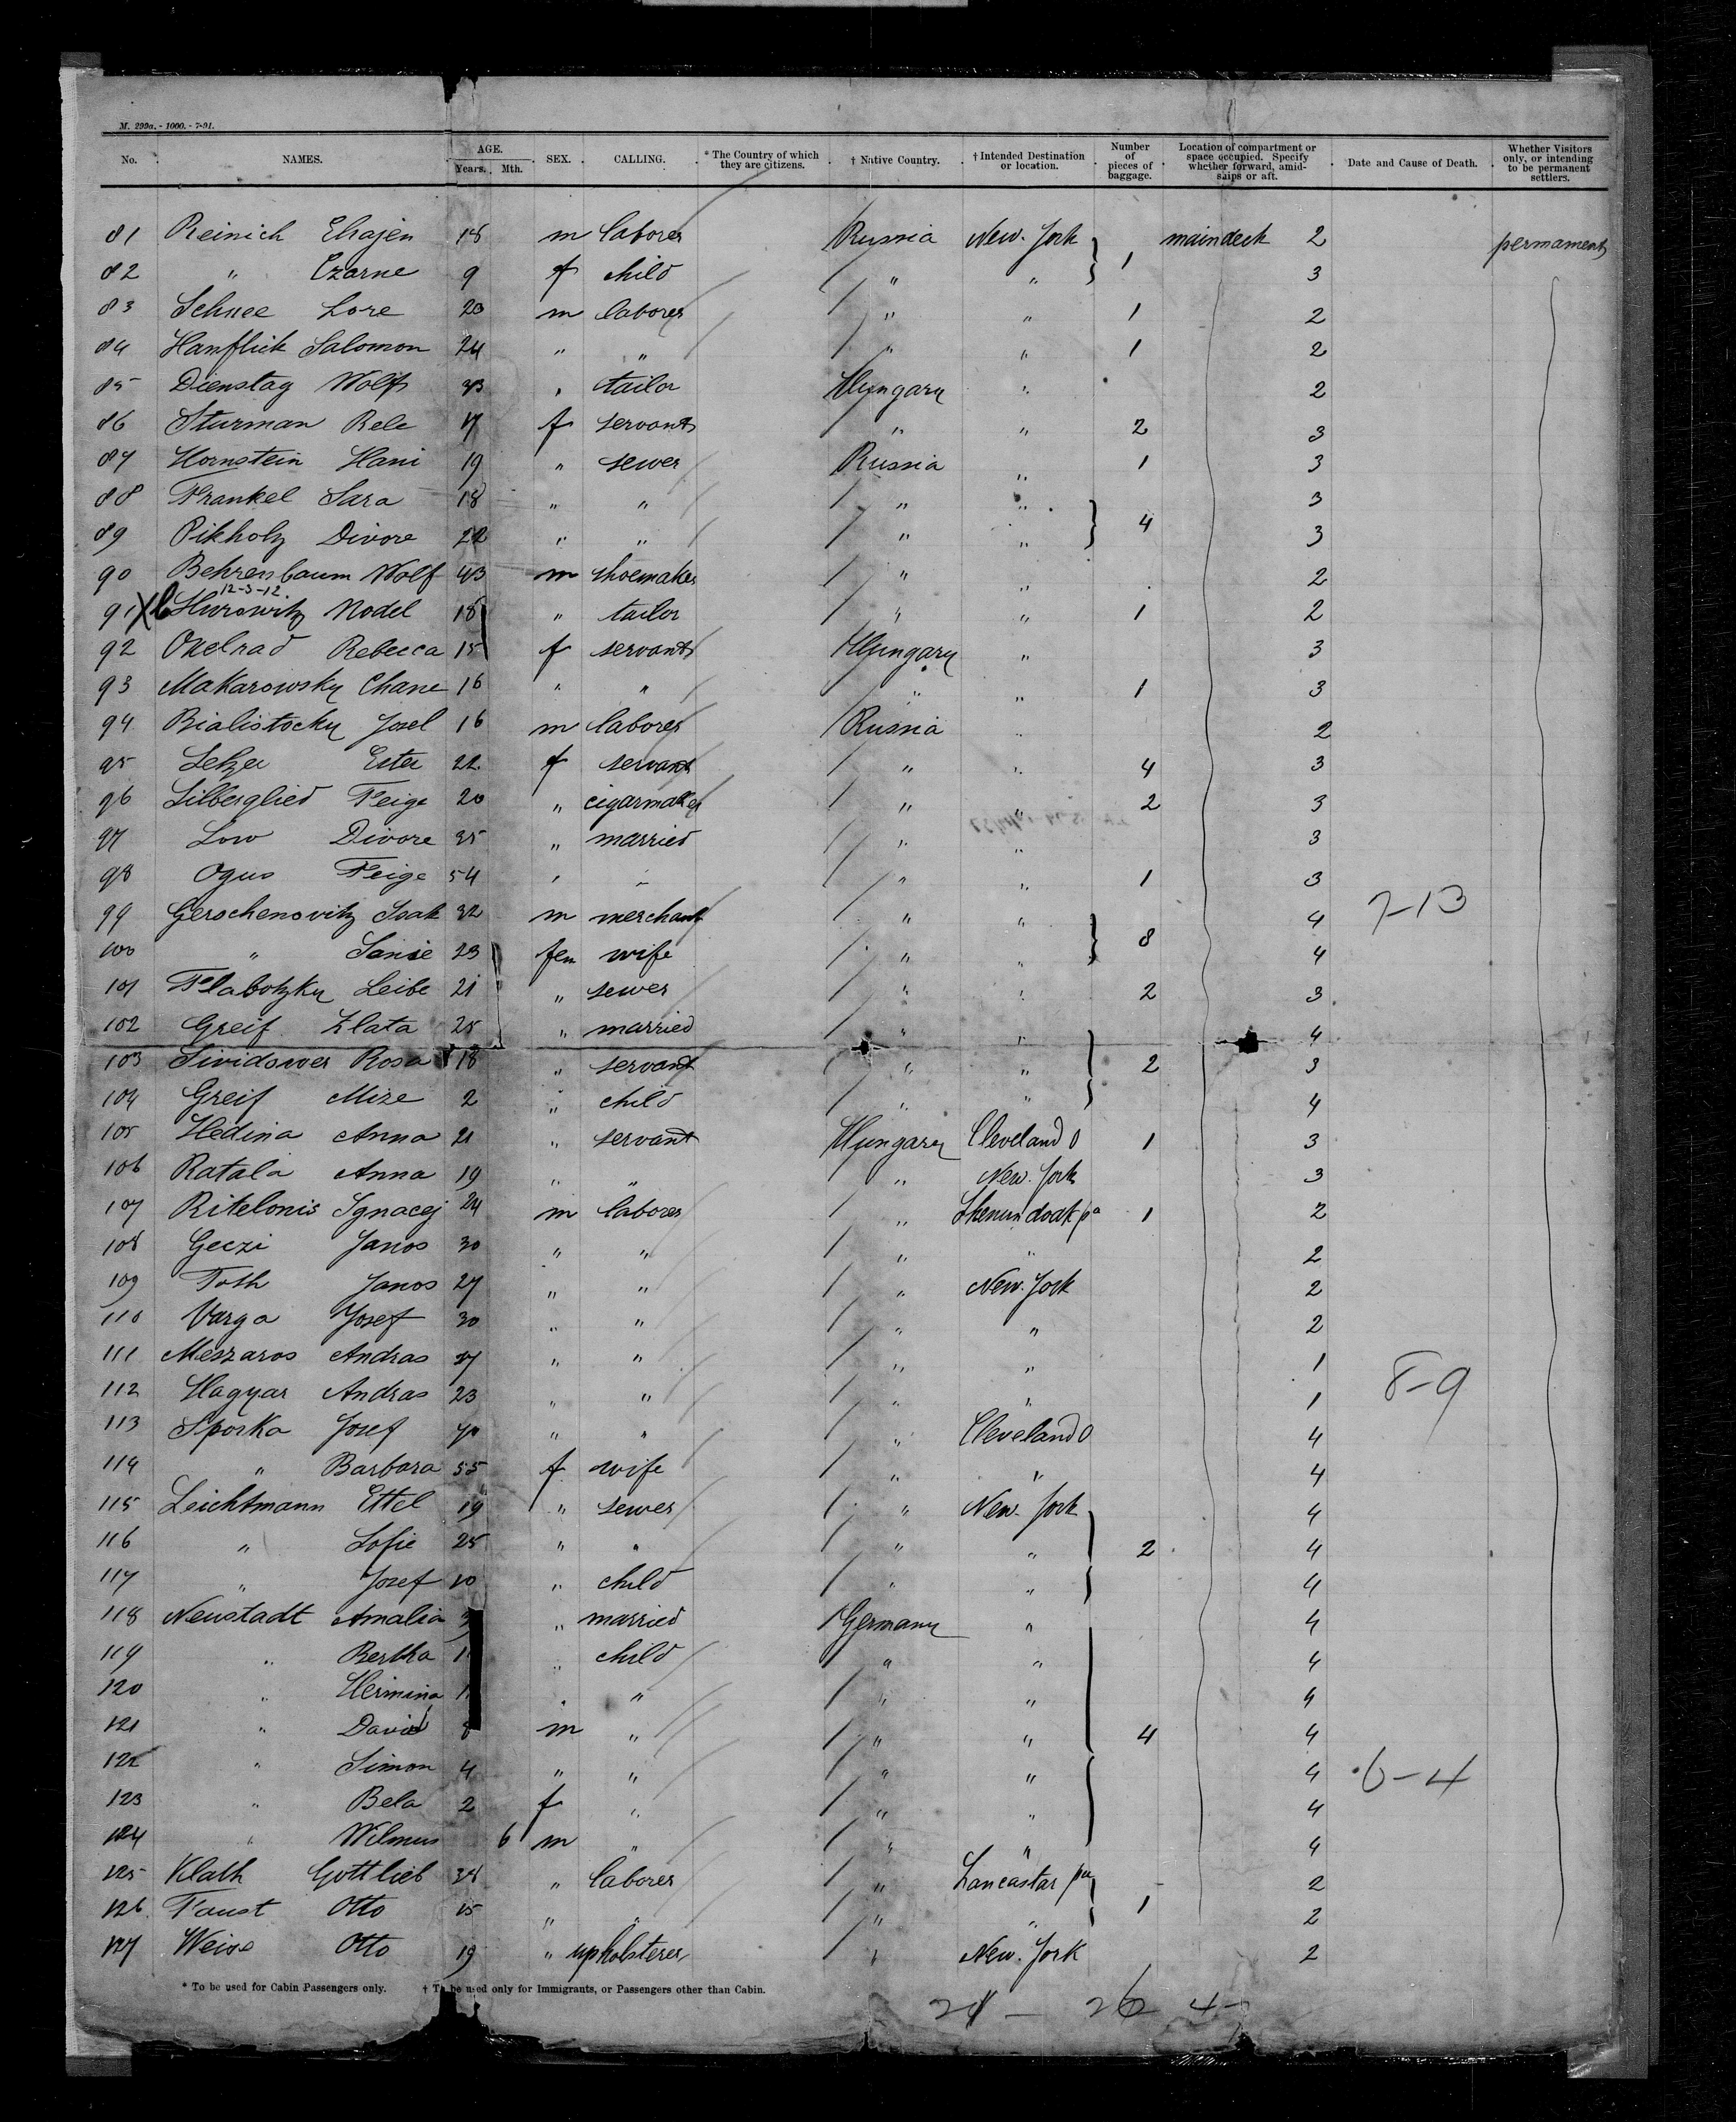 M. 299a. - 1000. - 7-91.
No. NAMES. AGE. Years. Mth. SEX. CALLING. * The Country of which they are citizens. † Native Country. † Intended Destination or location. Number of pieces of baggage. Location of compartment or space occupied. Specify whether forward, amidships or aft. Date and Cause of Death. Whether Visitors only, or intending to be permanent settlers.
81 Reinich 18 m laborer Russia New. York 1 maindeck 2 permament
82 " Czarne 9 f child " " 3
83 Schnee Lore 20 m laborer " " 1 2
84 Hanflick Salomon 24 " " " " 1 2
85 Dienstag Wolf 33 " tailor Hungary " 2
86 Sturman Rele 17 f servant " " 2 3
87 Hornstein Hani 19 " sewer Russia " 1 3
88 Frankel Sara 18 " " " " 3
89 Pikholz Divore 22 " " " " 4 3
90 Behrenbaum Wolf 43 m shoemaker " " 2
12-3-12
91 X Hurowitz Nodel 18 " tailor " " 1 2
92 Oxelrad Rebecca 15 f servant Hungary " 3
93 Makarowsky Chane 16 " " " " 1 3
94 Bialistocky Josel 16 m laborer Russia " 2
95 Ester 22 f servant " " 4 3
96 Silberglied Feige 20 " cigarmaker " " 2 3
97 Low Divore 35 " married " " 3
98 Ogus Feige 54 " " " " 1 3
99 Gerschenovitz Isak 32 m merchant " " 4 7-13
100 " 23 fem wife " " 8 4
101 Flabotzky Leibe 21 " sewer " " 2 3
102 Greif Zlata 25 " married " " 4
103 Rosa 18 " servant " " 2 3
104 Greif Mize 2 " child " " 4
105 Hedina Anna 21 " servant Hungary Cleveland O 1 3
106 Ratala Anna 19 " " " New. York 3
107 Ritelonis Ignacej 24 m laborer " Shenundoak pa 1 2
108 Geczi Janos 30 " " " " 2
109 Toth Janos 27 " " " New. York 2
110 Varga Josef 30 " " " " 2
111 Meszaros Andras 27 " " " " 1
112 Hagyar Andras 23 " " " " 1 8-9
113 Sporka Josef " " " Cleveland O 4
114 " Barbara 55 f wife " " 4
115 Leichtmann Ettel 19 " sewer " New. York 4
116 " Sofie 25 " " " " 2 4
117 " Josef 10 " child " " 4
118 Neustadt Amalia " married Germany " 4
119 " Bertha " child " " 4
120 " Hermina " " " " 4
121 " David 8 m " " " 4 4
122 " Simon 4 " " " " 4 6-4
123 " Bela 2 f " " " 4
124 " Wilmus 6 m " " " 4
125 Klath Gottlieb 38 " laborer " Lancastar pa 2
126 Faust Otto 15 " " " " 1 2
127 Weise Otto 19 " upholsterer " New. York 2
* To be used for Cabin Passengers only. † To be used only for Immigrants, or Passengers other than Cabin.
26 4-